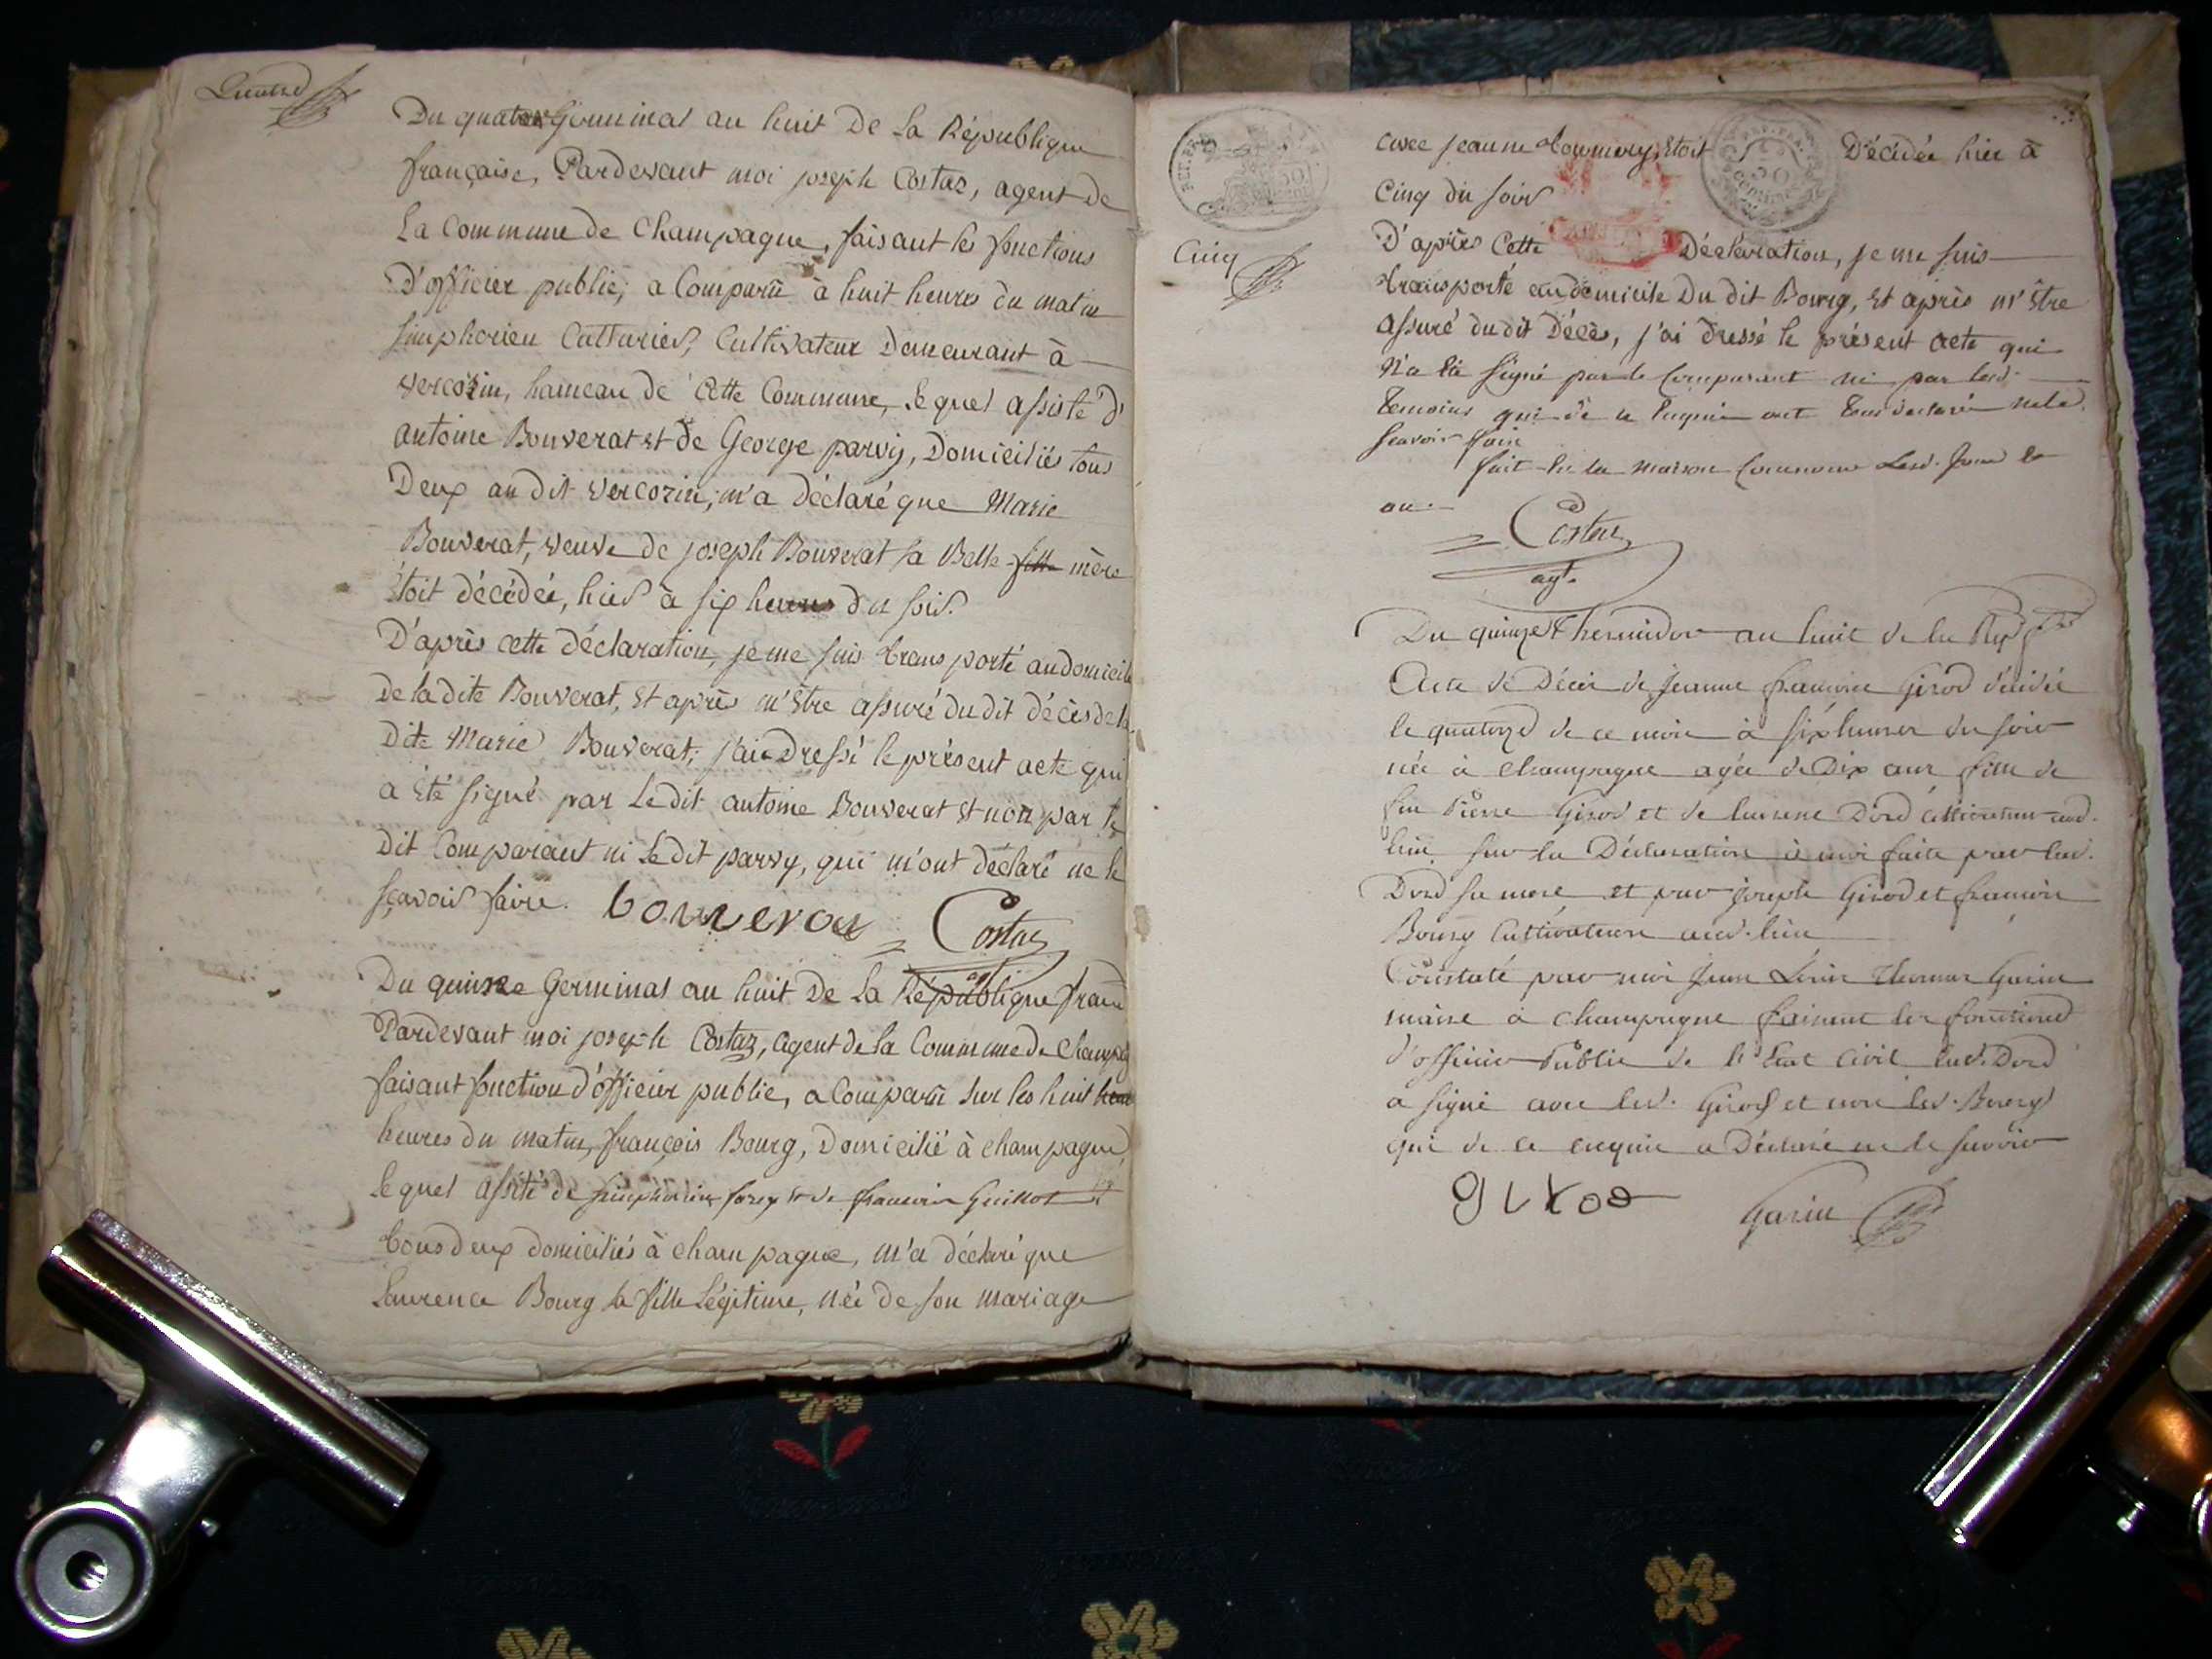 Du quatorze Germinal an huit De La République
française, Pardevant moi joseph Costaz, agent de
La Commune de Champagne, faisant les fonctions
D'officier public, a Comparû à huit heures du matin
Simphorien Catturier, Cultivateur Demeurant à
vercosin, hameau de Cette Commune, Lequel assisté d'
antoine Bouverat et de George parvy, Domiciliés tous
Deux au dit vercozin, m'a déclaré que Marie
Bouverat, veuve de joseph Bouverat sa Belle fille mère
étoit décédée, hier à six heures du soir.
D'après cette déclaration, je me suis transporté au domicile
De la dite Bouverat, et après m'être assuré du dit décès de la
Dite Marie Bouverat, j'ai Dressé le présent acte qui
a été signé par Le dit antoine Bouverat et non par le
Dit Comparant ni Le dit parvy, qui m'ont déclaré ne le
sçavoir faire. bouverat Costaz
agt.
Du quinze Germinal an huit De La République franç
Pardevant moi joseph Costaz, agent de la Commune de Champag
faisant fonction d'officier public, a Comparû sur les huit
heures du matin, françois Bourg, Domicilié à champagne,
Lequel assité de Simphorien forey et de françois Guillot
tous deux domiciliés à champagne, m'a déclaré que
Laurence Bourg sa fille Légitime, née de son mariage
avec jeanne étoit Décédée hier à
Cinq du soir
Cinq
D'après Cette Déclaration, je me suis
transporté au domicile Du dit Bourg, et après m'être
assuré du dit Décès, j'ai dressé le présent acte qui
n'a été signé par le Comparant ni par lesd.
temoins qui de ce requis ont tous declaré ne le
scavoir faire
fait en la maison Commune Lesd. Jour et
an.
Costaz
agt.
Du quinze thermidor an huit de la Rep fse
Acte de Décès de Jeanne françoise Girod décédée
le quatorze de ce mois à six heures du soir
née à champagne agée de Dix ans fille de
feu Pierre Girod et de Dord cultivateur aud.
lieu sur la Déclaration à moi faite par lad.
Dord sa mere et par joseph Girod et françois
Bourg Cultivateurs aud. lieu
Constaté par moi Jean Louis Thomas Garin
maire à champagne faisant les fonctions
d'officier Public de l'Etat Civil Lad. Dord
a signé avec led. Girod et non led. Bourg
qui de ce enquis a Déclaré ne le scavoir
girod Garin